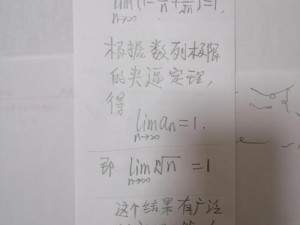 lim(1-1/n+2/√n)=1.
n→∞
根据数列极限
的夹逼定理,
得
lim aₙ=1.
n→∞
即 lim ⁿ√n =1
n→∞
这个结果有广泛